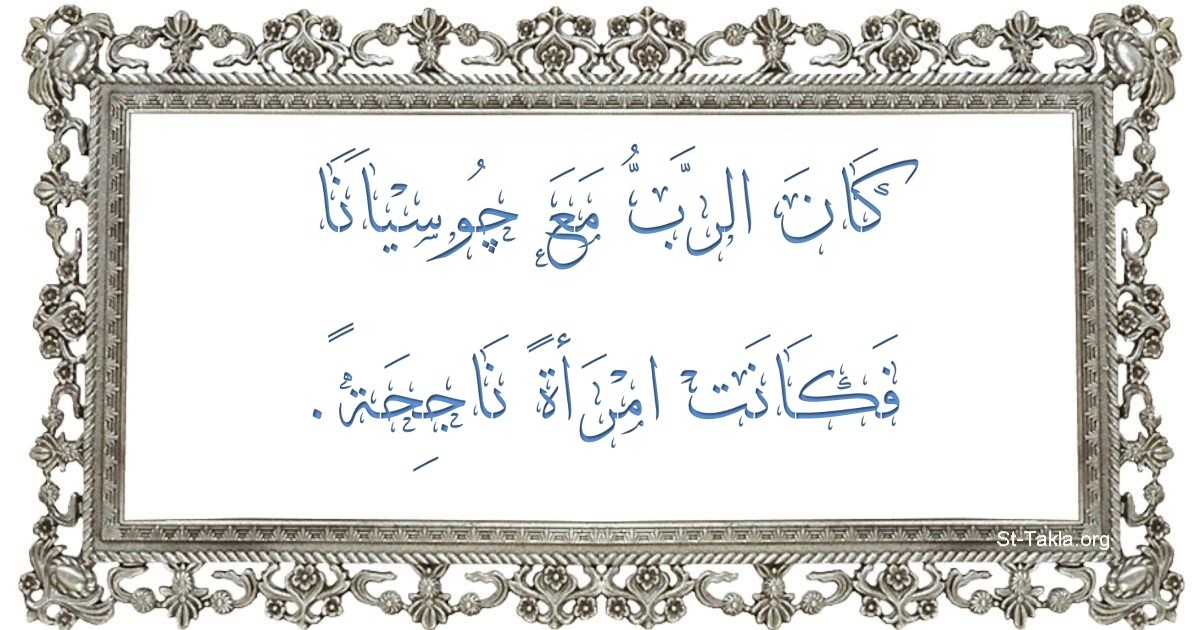 كَانَ الرَّبُّ مَعَ چُوسْيَانَا
فَكَانَتْ امْرَأَةً نَاجِحَةً.
St-Takla.org